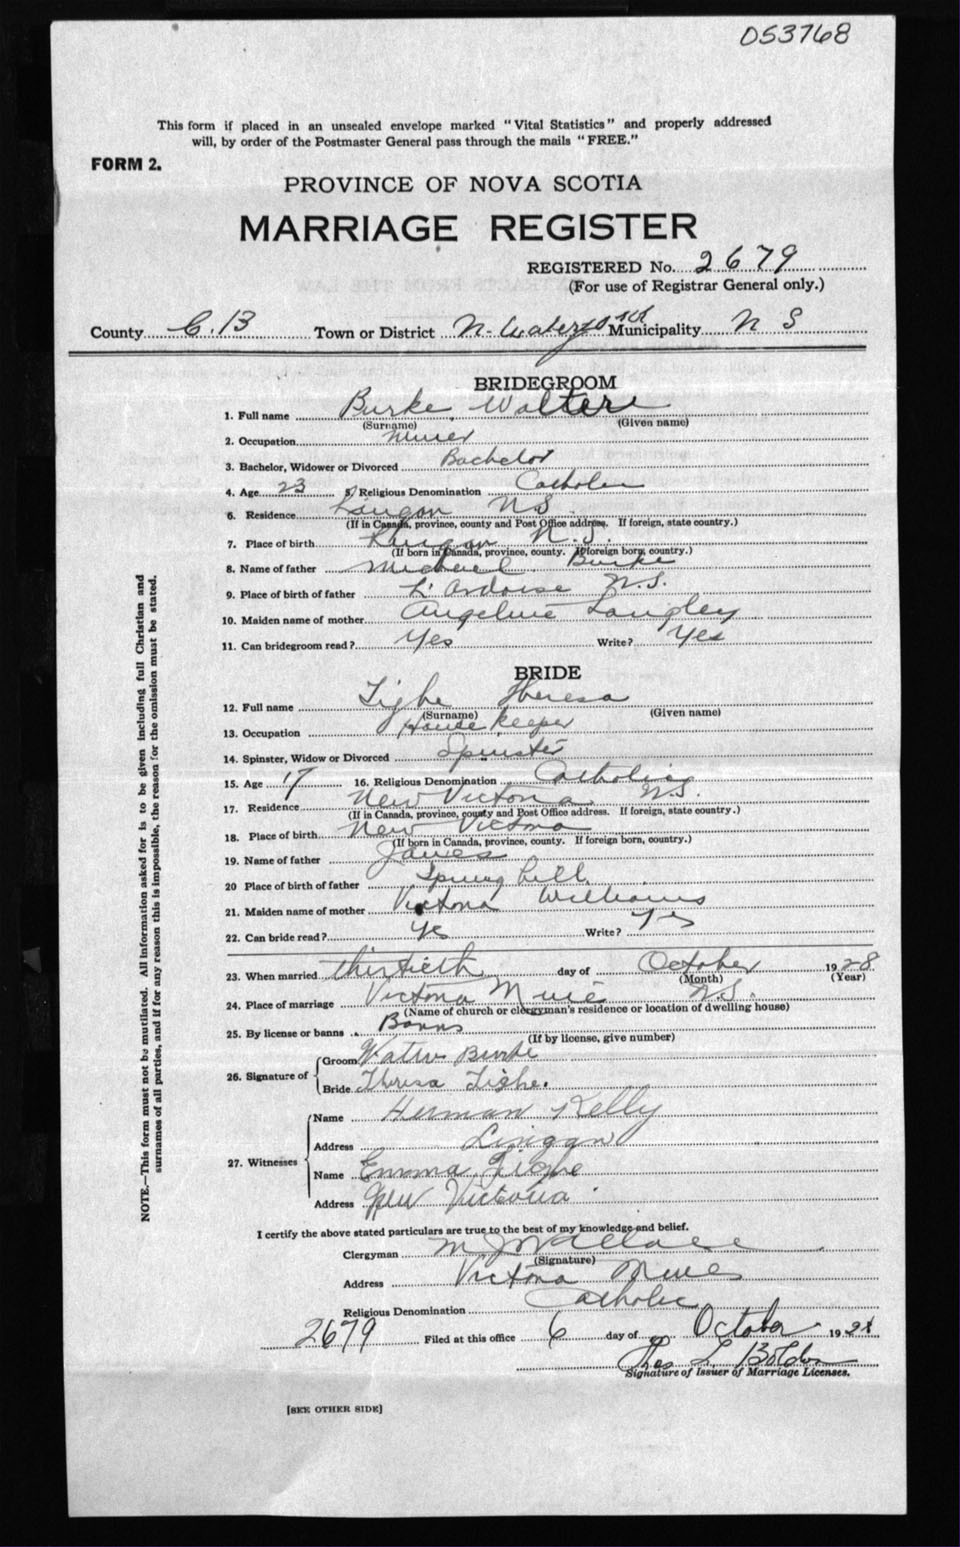 053768
This form if placed in an unsealed envelope marked "Vital Statistics" and properly addressed
will, by order of the Postmaster General pass through the mails "FREE."
FORM 2.
PROVINCE OF NOVA SCOTIA
MARRIAGE REGISTER
REGISTERED No. 2679
(For use of Registrar General only.)
County C.B Town or District N. Waterford Municipality N S
BRIDEGROOM
1. Full name Burke Walter
(Surname) (Given name)
2. Occupation Miner
3. Bachelor, Widower or Divorced Bachelor
4. Age 23 5. Religious Denomination Catholic
6. Residence Lingan N S.
(If in Canada, province, county and Post Office address. If foreign, state country.)
7. Place of birth Lingan N.S.
(If born in Canada, province, county. If foreign born, country.)
8. Name of father Michael Burke
9. Place of birth of father L'Ardoise N.S.
10. Maiden name of mother Angeline Langley
11. Can bridegroom read? Yes Write? Yes
BRIDE
12. Full name Tighe Theresa
(Surname) (Given name)
13. Occupation House Keeper
14. Spinster, Widow or Divorced Spinster
15. Age 17 16. Religious Denomination Catholic
17. Residence New Victoria N.S.
(If in Canada, province, county and Post Office address. If foreign, state country.)
18. Place of birth New Victoria
(If born in Canada, province, county. If foreign born, country.)
19. Name of father James
20 Place of birth of father Spring hill
21. Maiden name of mother Victoria Williams
22. Can bride read? Yes Write? Yes
23. When married thirtieth day of October 1928
(Month) (Year)
24. Place of marriage Victoria Mines N.S.
(Name of church or clergyman's residence or location of dwelling house)
25. By license or banns Banns
(If by license, give number)
26. Signature of
Groom Walter Burke
Bride Theresa Tighe.
27. Witnesses
Name Herman Kelly
Address Lingan
Name Emma Tighe
Address New Victoria
I certify the above stated particulars are true to the best of my knowledge and belief.
Clergyman M J Wallace
(Signature)
Address Victoria Mines
Religious Denomination Catholic
2679 Filed at this office 6 day of October 1928
Signature of Issuer of Marriage Licenses.
[SEE OTHER SIDE]
NOTE.—This form must not be mutilated. All information asked for is to be given including full Christian and
surnames of all parties, and if for any reason this is impossible, the reason for the omission must be stated.